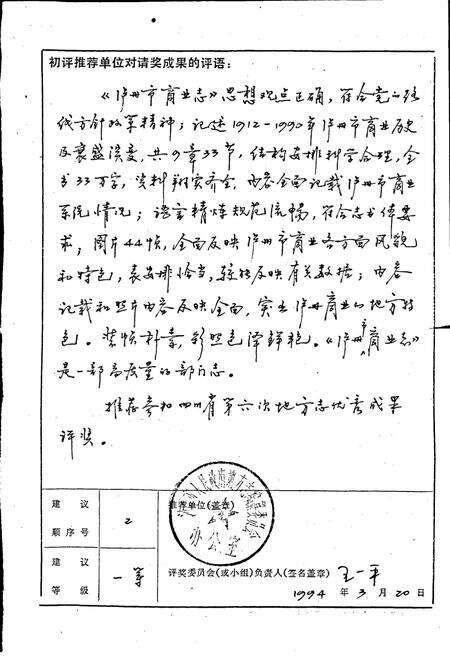 初评推荐单位对请奖成果的评语：
《泸州市商业志》思想观点正确，符合党的路
线方针政策精神；记述1912-1990年泸州市商业历史
及衰盛演变，共9章33节，结构安排科学合理，全
书33万字，资料翔实齐全，内容全面记载泸州市商业
系统情况；语言精炼规范流畅，符合志书体要
求；图片44帧，全面反映泸州市商业各方面风貌
和特色，表安排恰当，较好反映有关数据；内容
记载和照片内容反映全面，突出泸州商业的地方特
色。装帧朴素，彩照色泽鲜艳。《泸州市商业志》
是一部高质量的部门志。
推荐参加四川省第六次地方志优秀成果
评奖。
建议
顺序号
2
推荐单位(盖章)
办公室
建议
等级
一等
评奖委员会(或小组)负责人(签名盖章) 王一平
1994 年 3 月 20 日